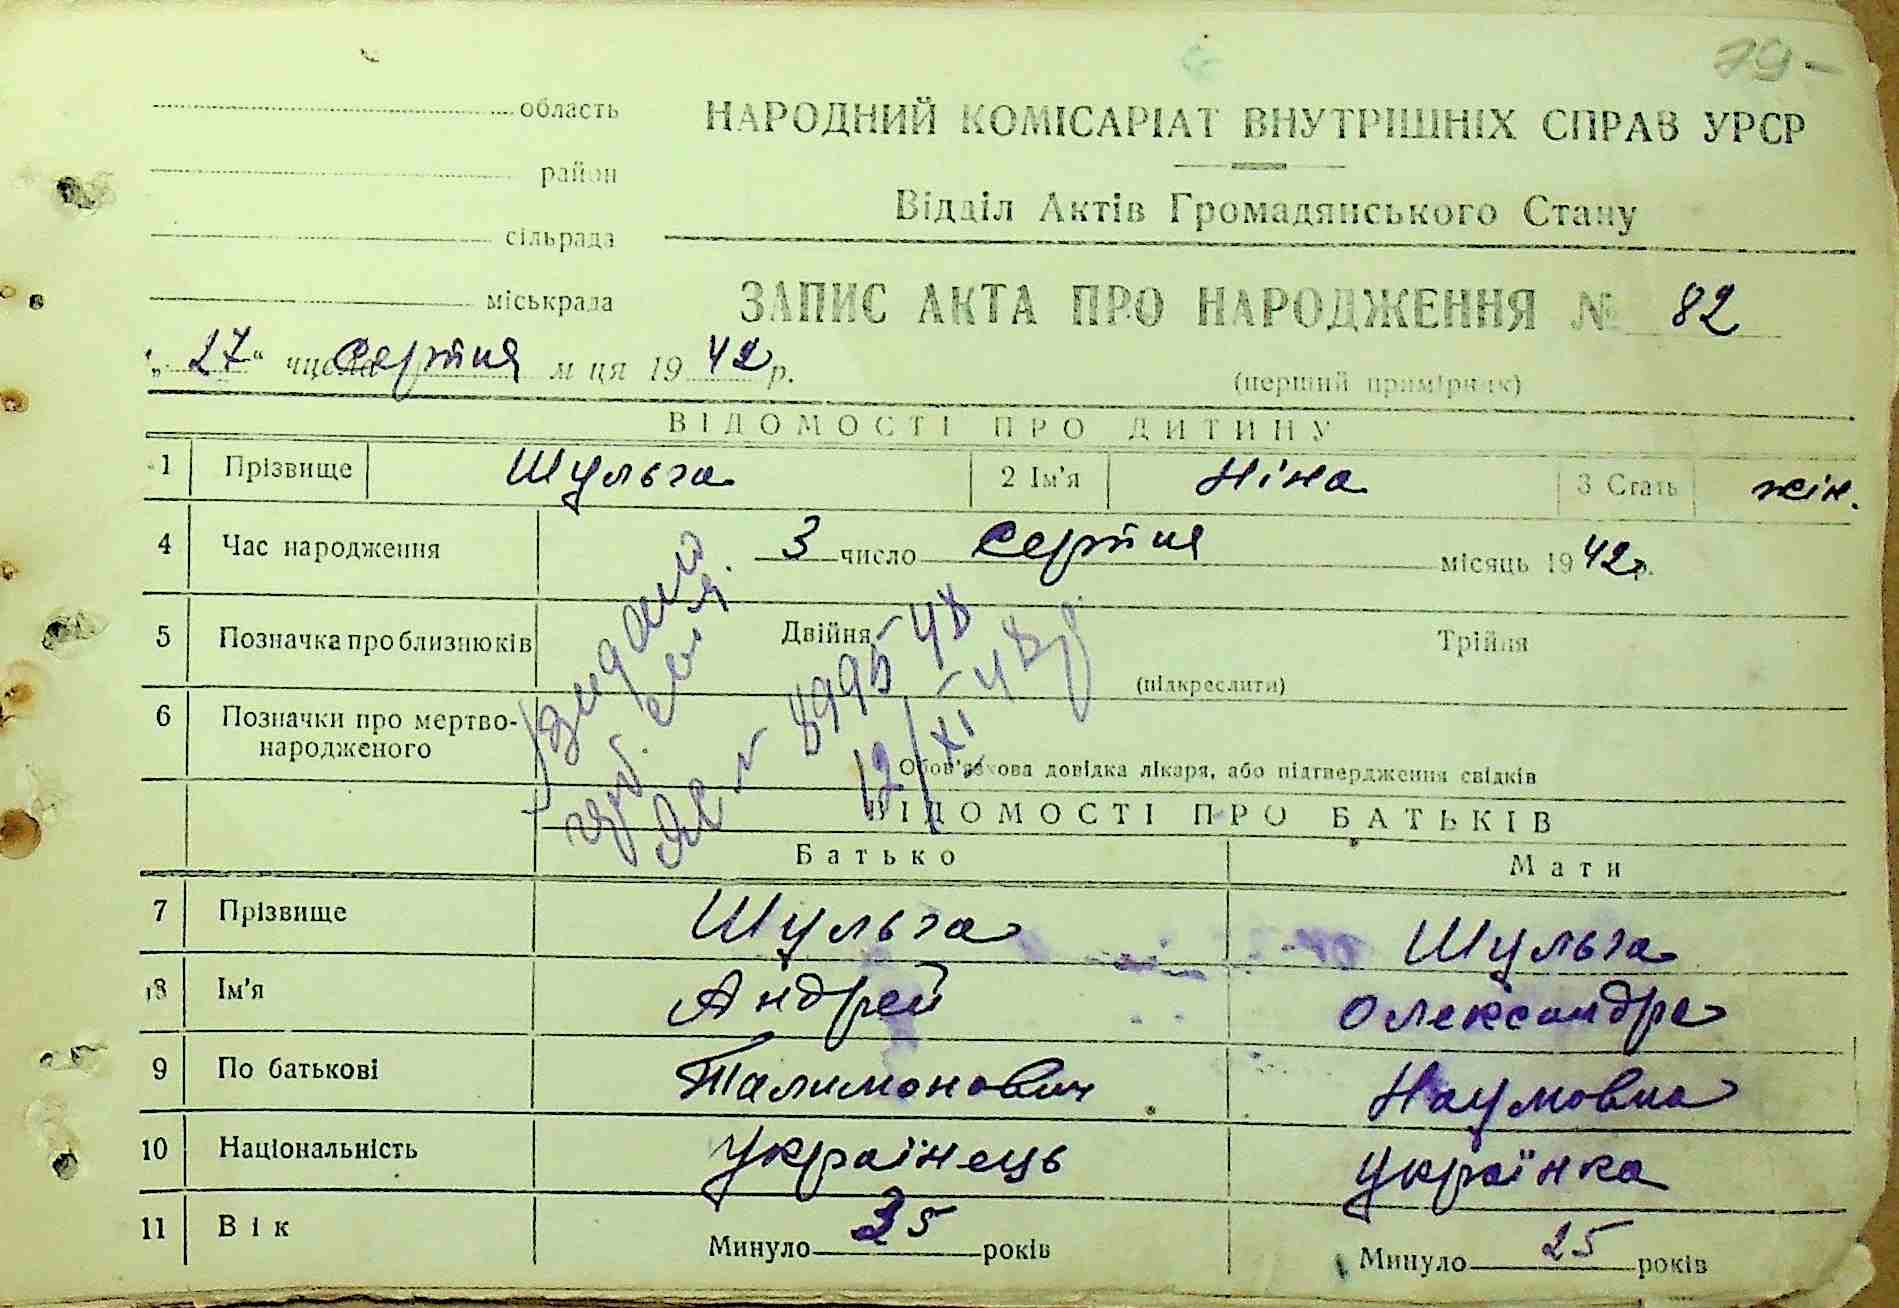 79-
область
НАРОДНИЙ КОМІСАРІАТ ВНУТРІШНІХ СПРАВ УРСР
район
Відділ Актів Громадянського Стану
сільрада
міськрада
ЗАПИС АКТА ПРО НАРОДЖЕННЯ № 82
„27“ числа серпня м ця 1942 р.
(перший примірник)
ВІДОМОСТІ ПРО ДИТИНУ
1 Прізвище Шульга 2 Ім'я Ніна 3 Стать жін.
4 Час народження 3 число серпня місяць 1942 р.
5 Позначка про близнюків Двійня Трійня
(підкреслити)
6 Позначки про мертво-
народженого
Обов'язкова довідка лікаря, або підтвердження свідків
видано
12/XI 48 р
ВІДОМОСТІ ПРО БАТЬКІВ
Батько Мати
7 Прізвище Шульга Шульга
8 Ім'я Андрей Олександра
9 По батькові Талимонович Наумовна
10 Національність Українець Українка
11 Вік Минуло 35 років Минуло 25 років